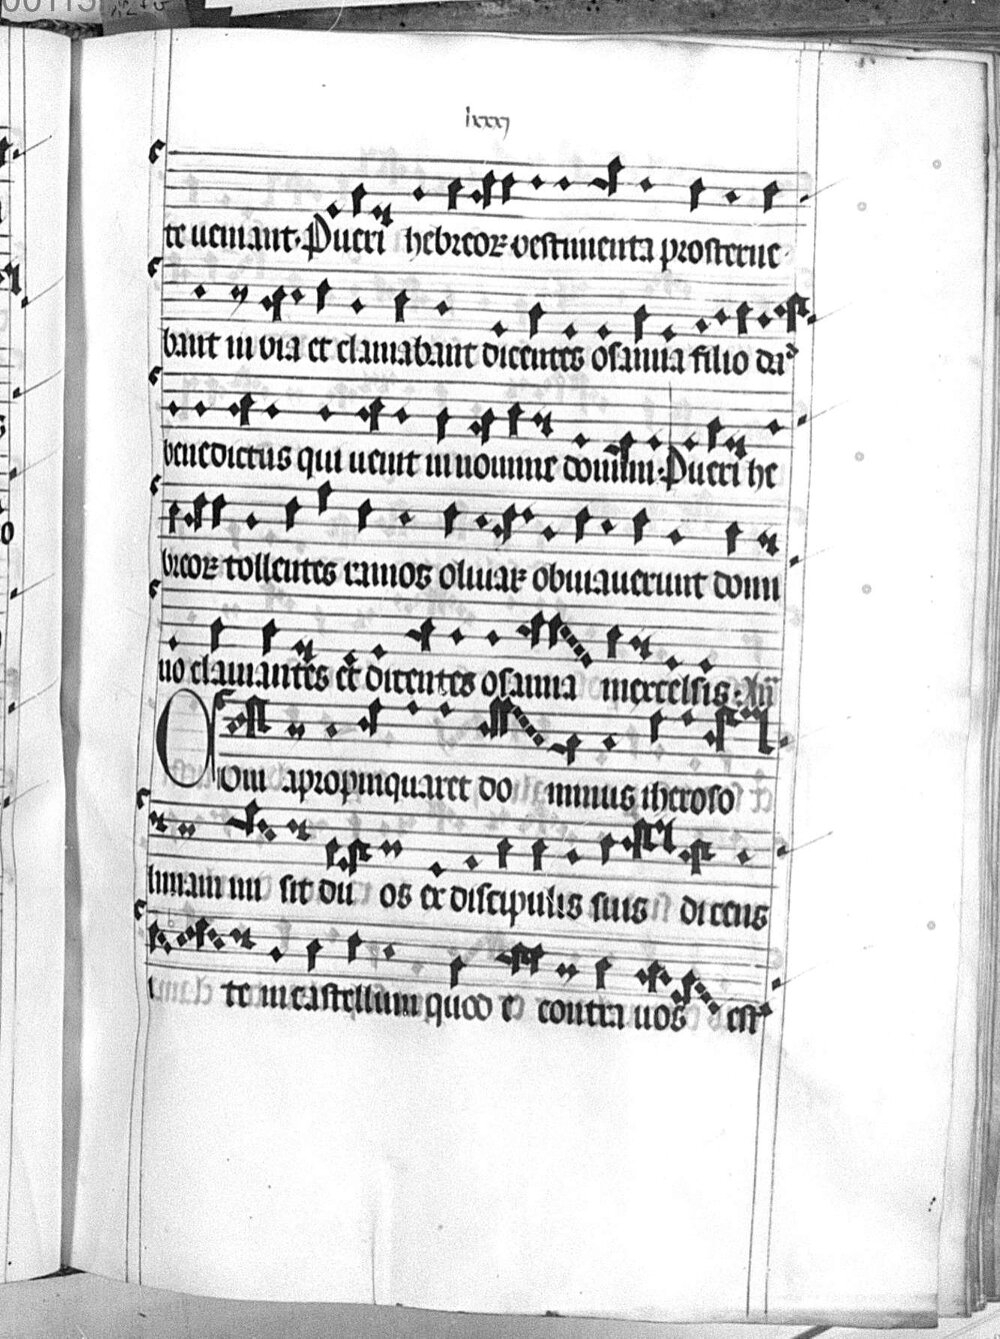 lxxxj
te ueniant. Pueri hebreoꝝ vestimenta prosterne
bant in via et clamabant dicentes osanna filio da
benedictus qui uenit in nomine domini. Pueri he
breoꝝ tollentes ramos oliuaꝝ obuiauerunt domi
no clamantes et dicentes osanna in excelsis.
Cum apropinquaret dominus iheroso
limam mi sit du os ex discipulis suis dicens
te in castellum quod contra uos est